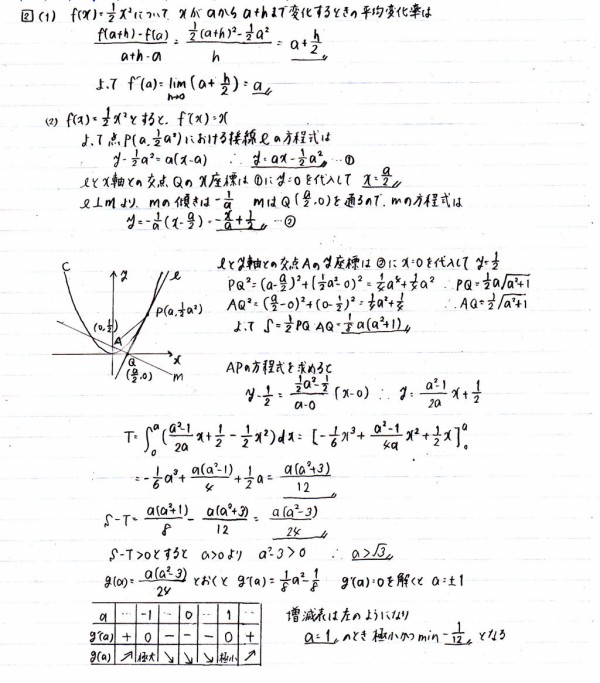 2 (1) f(x)=1/2x²について、xがaからa+hまで変化するときの平均変化率は
f(a+h)-f(a)/a+h-a = 1/2(a+h)²-1/2a²/h = a+h/2
よって f'(a)=lim h→0 (a+h/2)=a
(2) f(x)=1/2x²とすると、f'(x)=x
よって点P(a,1/2a²)における接線ℓの方程式は
y-1/2a²=a(x-a) ∴ y=ax-1/2a² …①
ℓとx軸との交点Qのx座標は①にy=0を代入して x=a/2
ℓ⊥mより、mの傾きは-1/a mはQ(a/2,0)を通るので、mの方程式は
y=-1/a(x-a/2)=-x/a+1/2 …②
ℓとy軸との交点Aのy座標は②にx=0を代入して y=1/2
PQ²=(a-a/2)²+(1/2a²-0)²=1/4a⁴+1/4a² ∴ PQ=1/2a√a²+1
AQ²=(a/2-0)²+(0-1/2)²=1/4a²+1/4 ∴ AQ=1/2√a²+1
よって S=1/2PQ・AQ=1/8a(a²+1)
C
y
ℓ
P(a,1/2a²)
(0,1/2)
A
Q
x
(a/2,0)
m
APの方程式を求めると
y-1/2=1/2a²-1/2/a-0(x-0) ∴ y=a²-1/2a x+1/2
T=∫₀ᵃ(a²-1/2a x+1/2-1/2x²)dx=[-1/6x³+a²-1/4a x²+1/2x]₀ᵃ
=-1/6a³+a(a²-1)/4+1/2a=a(a²+3)/12
S-T=a(a²+1)/8-a(a²+3)/12=a(a²-3)/24
S-T>0とすると a>0より a²-3>0 ∴ a>√3
g(a)=a(a²-3)/24とおくと g'(a)=1/8a²-1/8 g'(a)=0を解くと a=±1
a … -1 … 0 … 1 …
g'(a) + 0 - - - 0 +
g(a) ↗ 極大 ↘ ↘ ↘ 極小 ↗
増減表は左のようになり
a=1のとき極小かつmin -1/12 となる